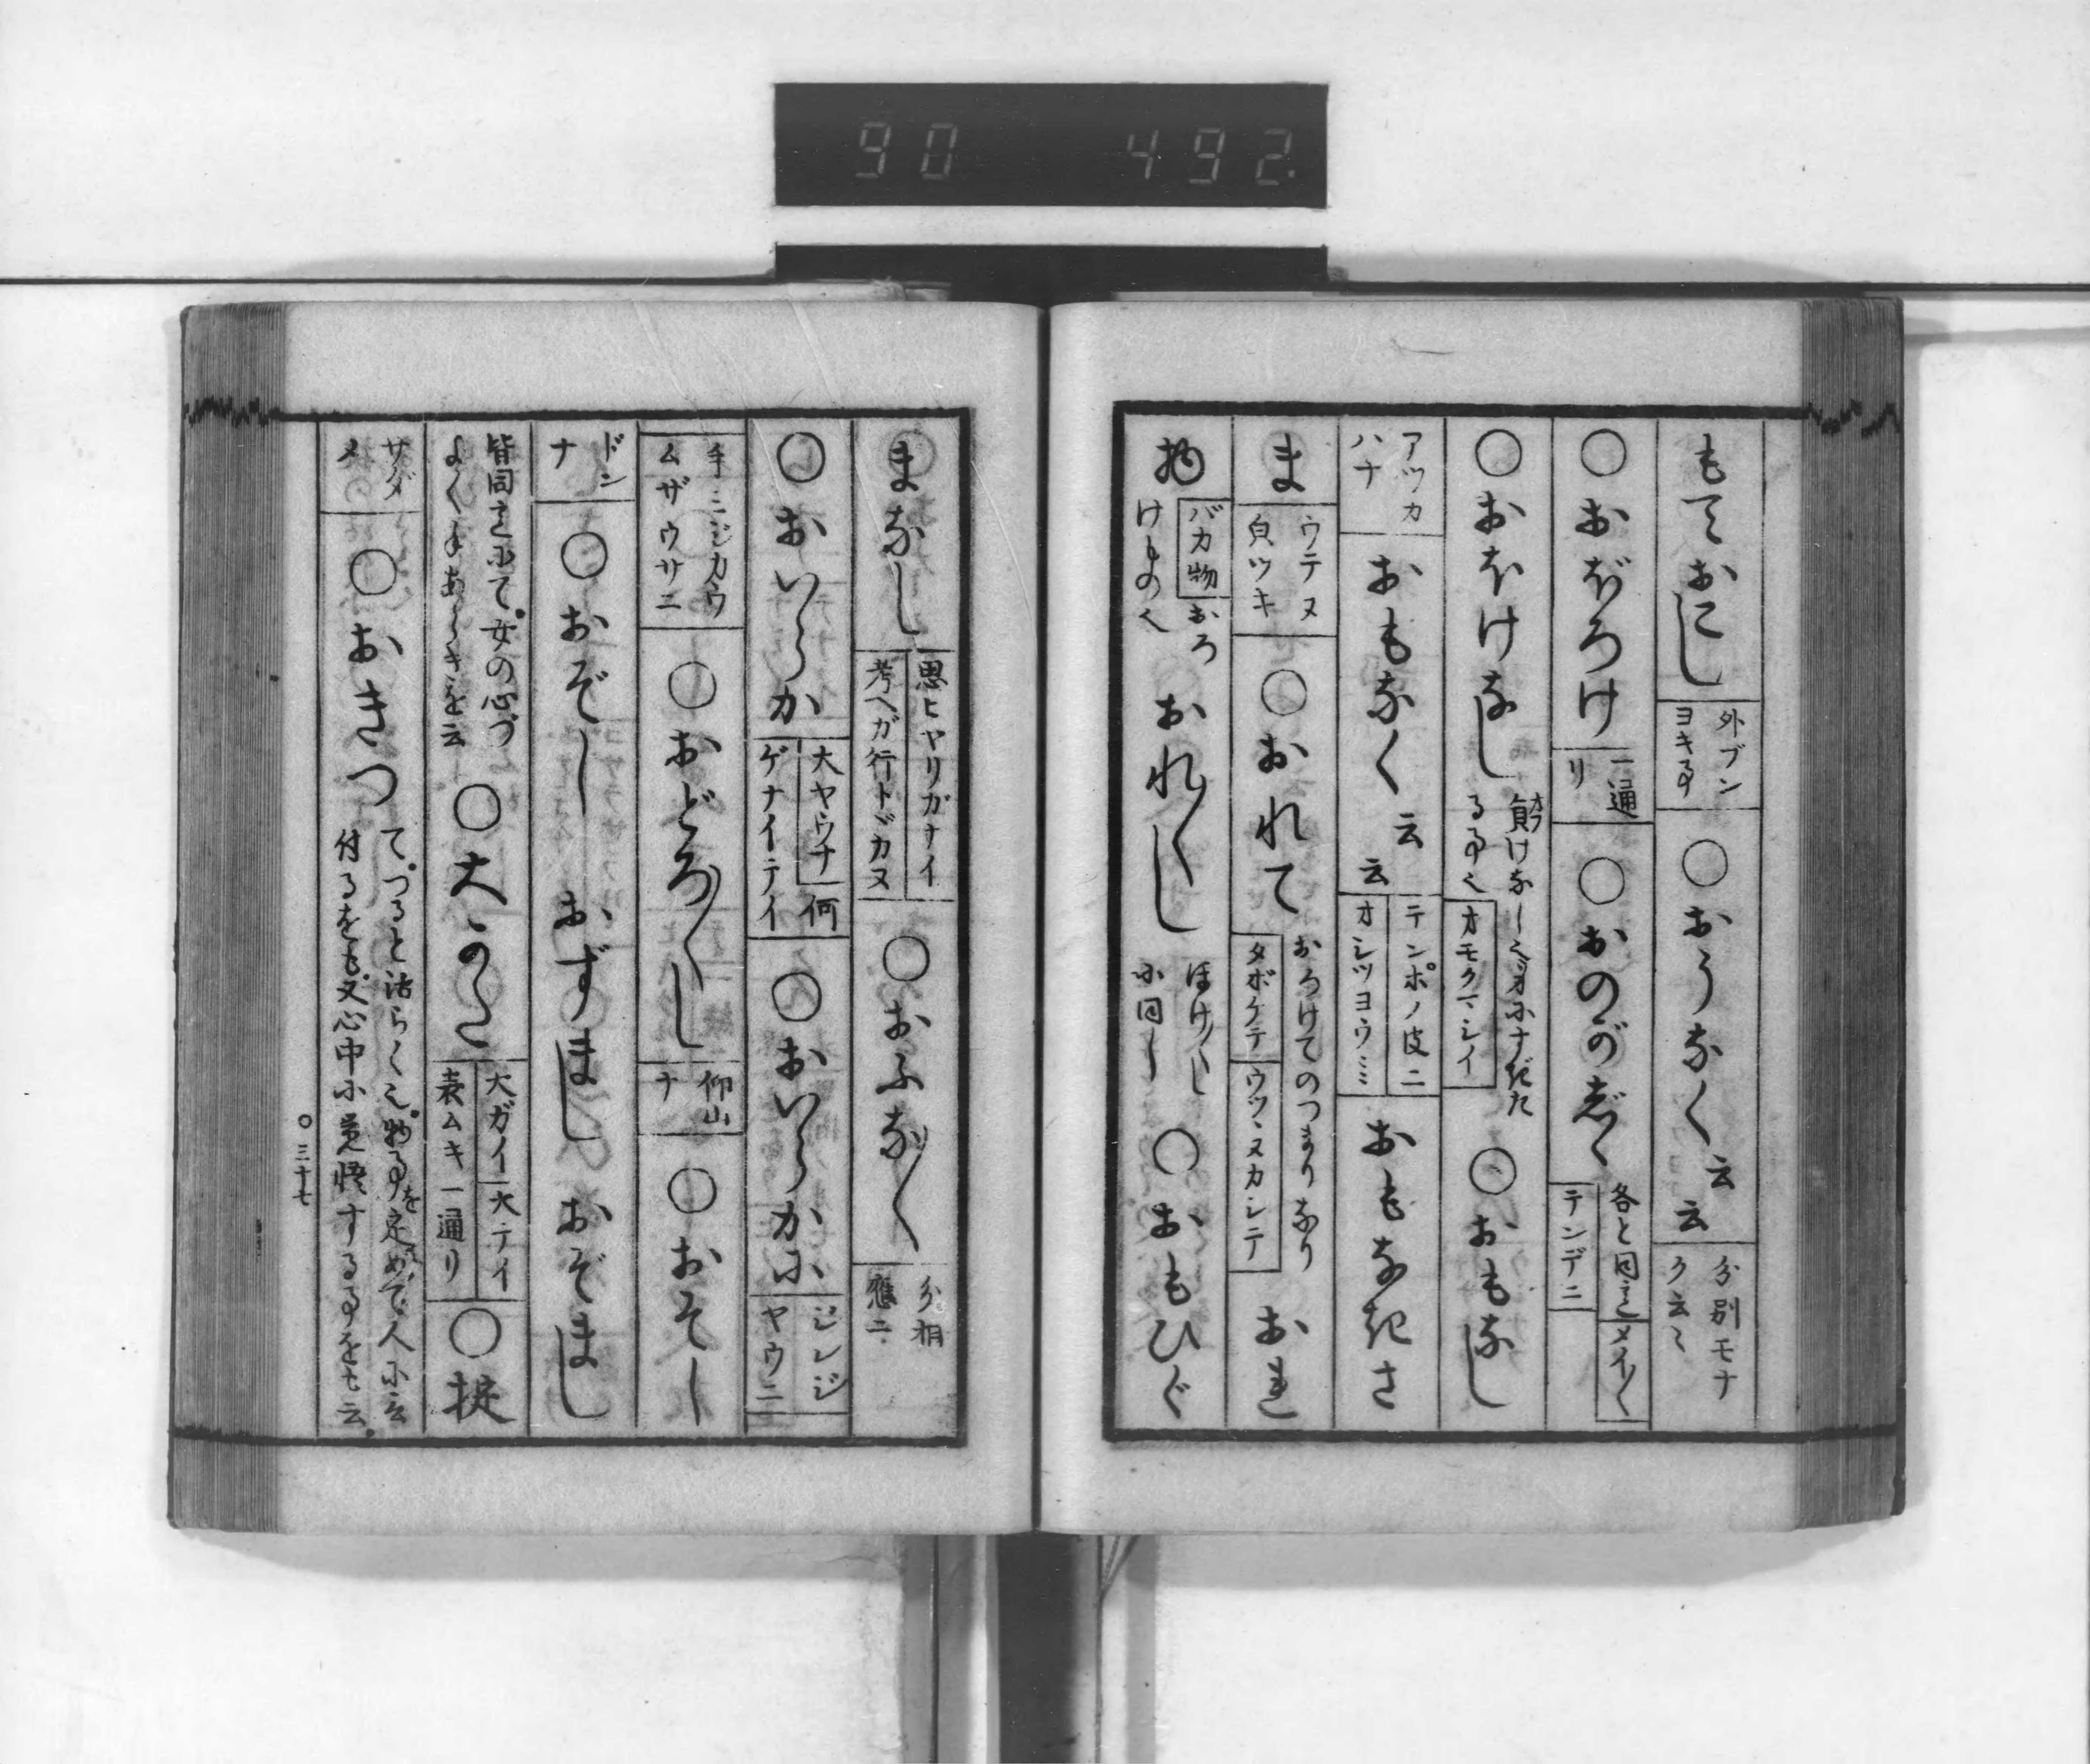 90 492.
もておこし
外ブン
ヨキ事
○おうなく
云
云
分別モナ
ク云々
○おぼろけ
一通
リ
○おのがじゝ
各と同言
メイ〱
テンデニ
○おほけなし
負けなし
る事也
オモクマシイ
○おもなし
アツカ
ハナ
おもなく
云
云
テンポノ皮ニ
オシツヨウミミ
おもなきさ
ま
ウテヌ
負ツキ
○おれて
おろけてのつまりなり
タボケテ
ウツヽヌカシテ
おれ
物
バカ物
おろ
けもの也
おれ〱し
ほけ〱し
に同し
○おもひぐ
まなし
思ヒヤリガナイ
考ヘガ行トヾカヌ
○おふな〱
分相
應ニ
○おいらか
大ヤウナ
何
ゲナイテイ
○おいらかに
ジレジ
ヤウニ
手ミジカウ
ムザウサニ
○おどろ〱し
仰山
ナ
○おぞし
ドン
ナ
○おぞし
おずまし
おぞまし
皆同言にて。女の心づ
よく手あらきを云
○大かた
大ガイ
大テイ
表ムキ一通リ
○掟
サダ
メ
○おきつ
て。つると活らく也。物事を定めて。人に云
付るをも。又心中に覚悟する事をも云。
○三十七